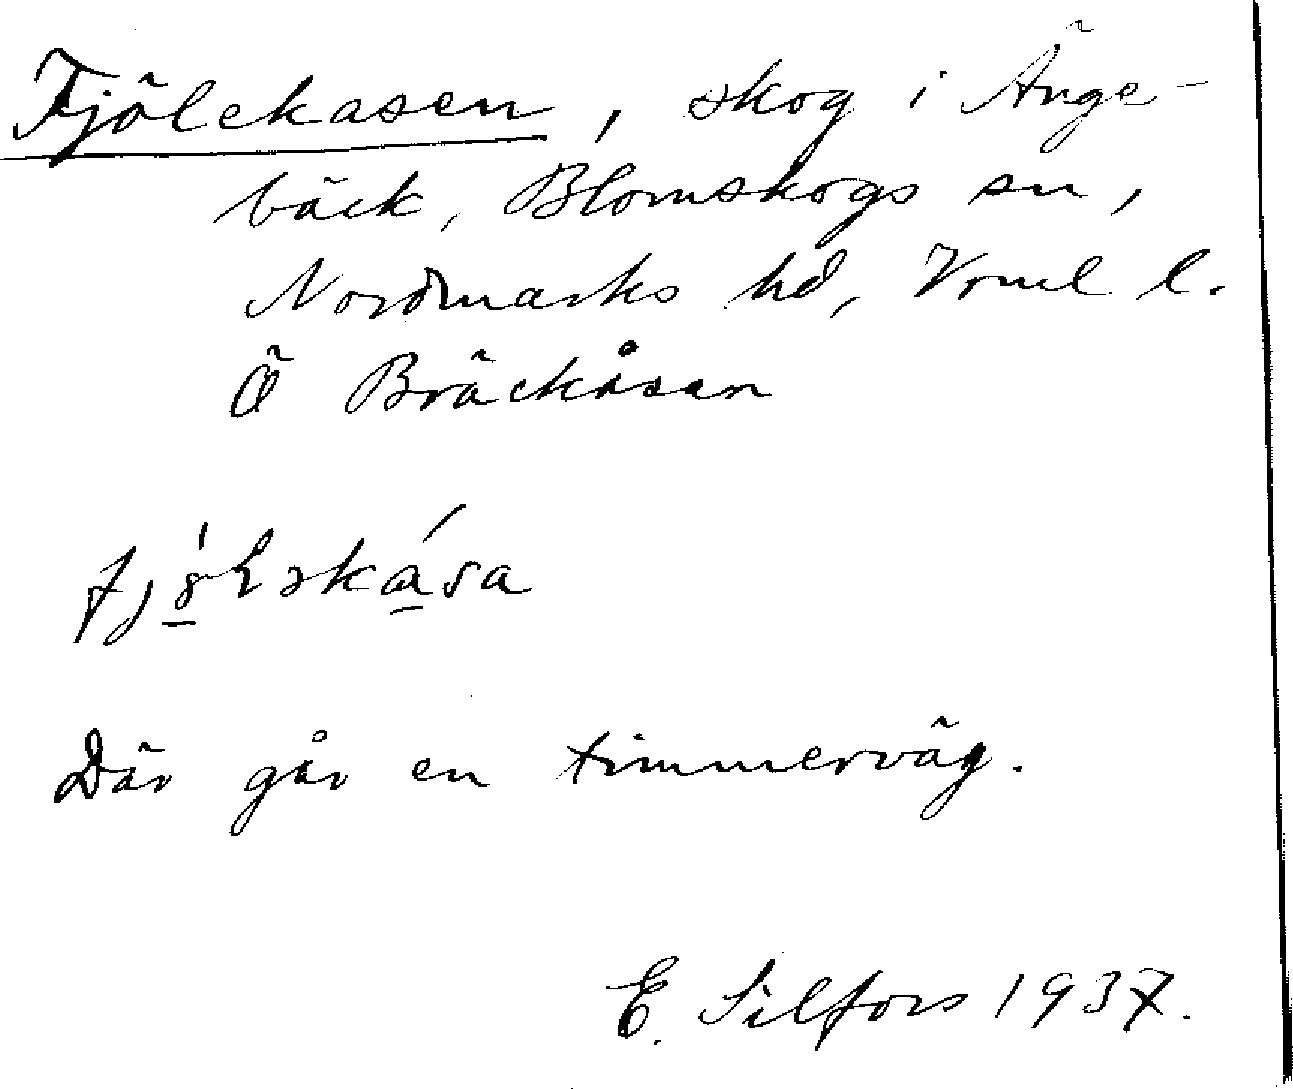 Fjölekasen, skog i Änge-
bäck, Blomskogs sn,
Nordmarks hd, Vrml l.
Ö Bräckåsen
Där går en timmerväg.
E. Silfors 1937.